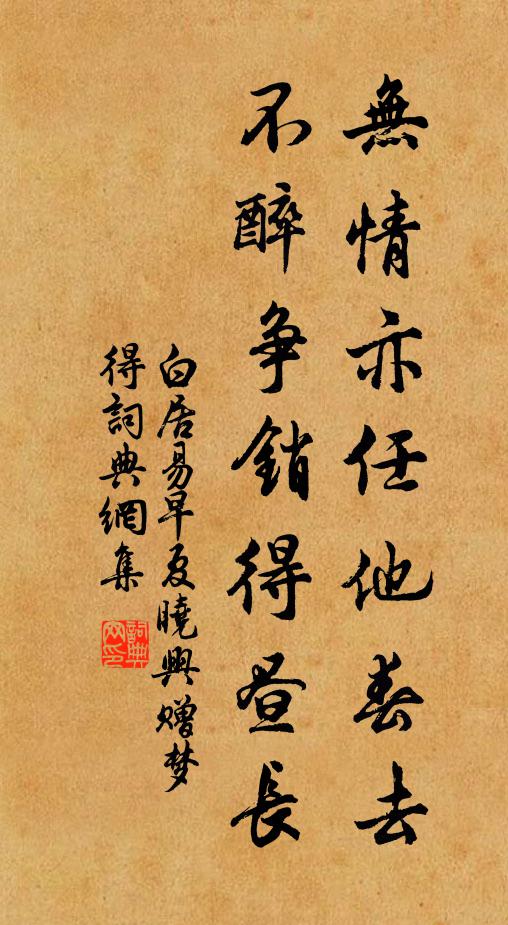 無情亦任他春去
不醉争銷得昼長
白居易早夏曉興赠梦
得詞典網集
詞典
网印